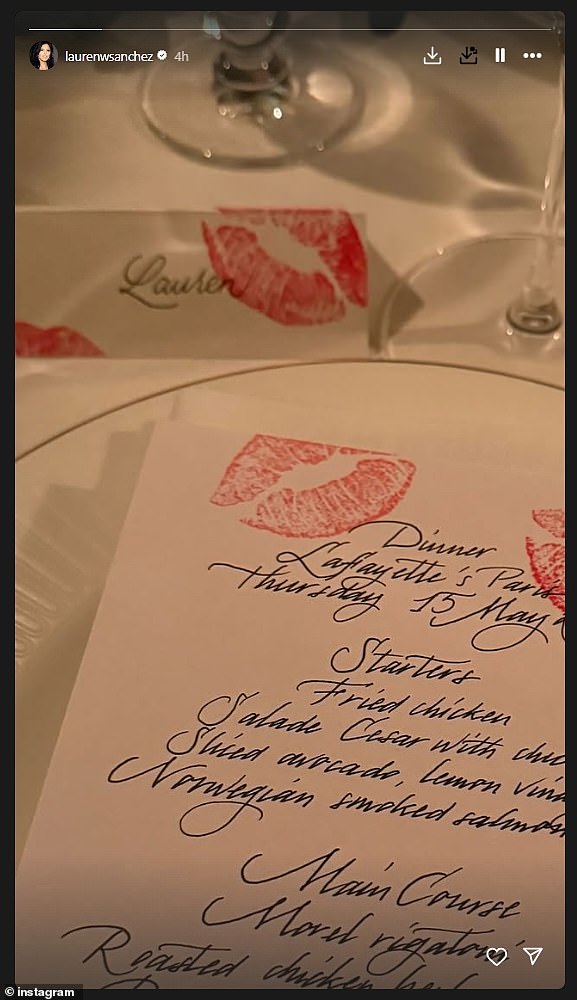 laurenwsanchez 4h
Lauren
Dinner
Lafayette's Paris
Thursday 15 May
Starters
Fried chicken
Salade Cesar with
Sliced avocado, lemon
Norwegian smoked salmon
Main Course
Morel rigatoni
Roasted chicken
© instagram